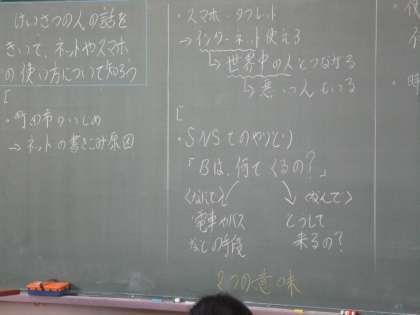 けいさつの人の話を
きいて、ネットやスマホ
の使い方について知ろう
・町田市のいじめ
→ネットの書きこみ原因
・スマホ タブレット
→インターネット使える
世界中の人とつながる
悪い人もいる
・SNSでのやりとり
「Bは、何でくるの?」
〈なにで〉
電車やバス
などの手段
〈なんで〉
どうして
来るの?
2つの意味